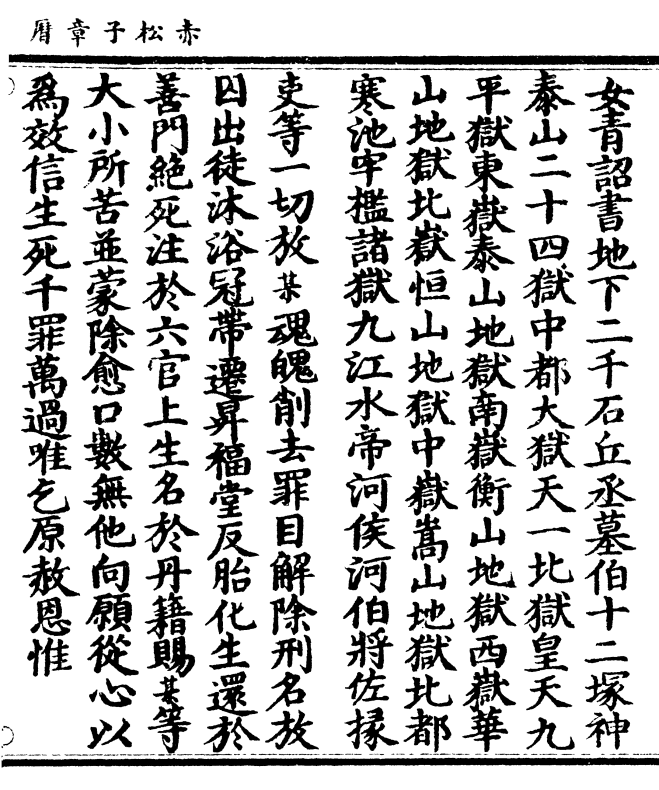 赤松子章曆
女青詔書地下二千石丘丞墓伯十二塚神
泰山二十四獄中都大獄天一北獄皇天九
平獄東嶽泰山地獄南嶽衡山地獄西嶽華
山地獄北嶽恒山地獄中嶽嵩山地獄北都
寒池牢檻諸獄九江水帝河侯河伯將佐掾
吏等一切放某魂魄削去罪目解除刑名放
囚出徒沐浴冠帶遷昇福堂反胎化生還於
善門絕死注於六宮上生名於丹籍賜某等
大小所苦並蒙除愈口數無他向願從心以
為效信生死千罪萬過唯乞原赦恩惟